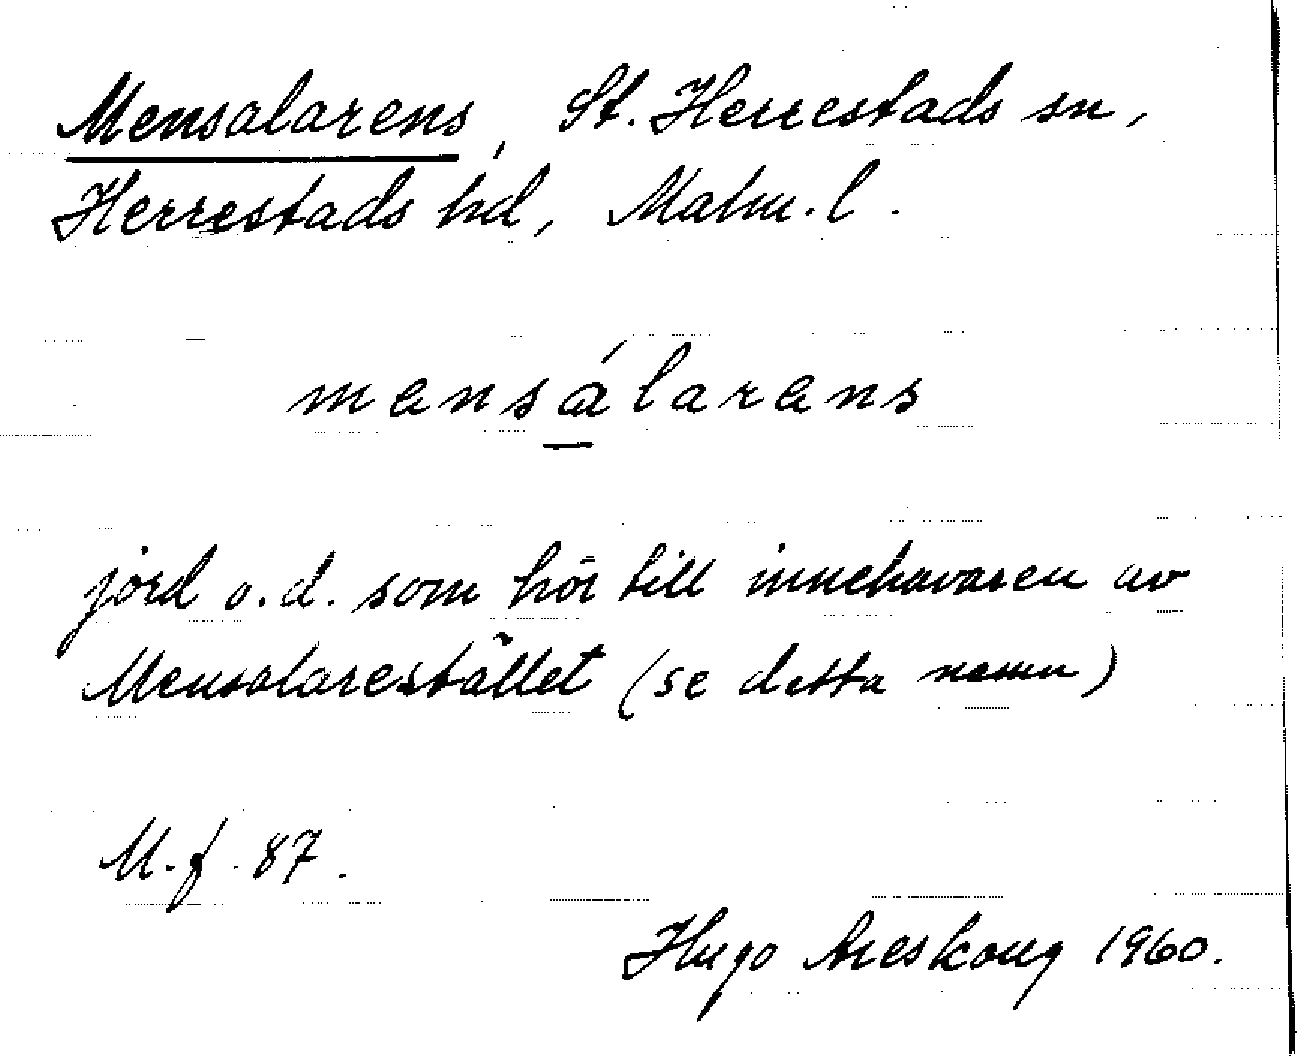 Mensalarens, St. Herrestads sn,
Herrestads hd, Malm. l.
mensálarens
jord o.d. som hör till innehavaren av
Mensalarestället (se detta namn)
M. f. 87.
Hugo Areskoug 1960.